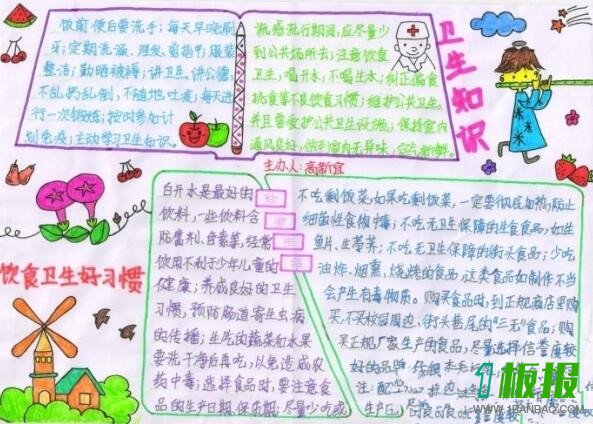 饭前便后要洗手;每天早晚刷
牙;定期洗澡、理发、剪指甲;服装
整洁;勤晒被褥;讲卫生,讲公德,
不乱扔乱倒,不随地吐痰;每天进
行一次锻炼;按时参加计
划免疫;主动学习卫生知识。
流感流行期间,应尽量少
到公共场所去;注意饮食
卫生,喝开水,不喝生水;纠正偏食
挑食等不良饮食习惯;维护公共卫生,
并且要爱护公共卫生设施;保持室内
通风良好,做到室内无异味,空气新鲜。
卫生知识
主办人:高新宜
饮食卫生好习惯
白开水是最好的
饮料,一些饮料含
防腐剂、色素等,经常
饮用不利于少年儿童的
健康;养成良好的卫生
习惯,预防肠道寄生虫病
的传播;生吃的蔬菜和水果
要洗干净后再吃,以免造成农
药中毒;选择食品时,要注意食
品的生产日期、保质期;尽量少吃或
不吃剩饭菜,如果吃剩饭菜,一定要彻底加热,防止
细菌性食物中毒;不吃无卫生保障的生食食品,如生
鱼片、生荸荠;不吃无卫生保障的街头食品;少吃
油炸、烟熏、烧烤的食品,这类食品如制作不当
会产生有毒物质。购买食品时,到正规商店里购
买,不买校园周边、街头巷尾的“三无”食品;购
买正规厂家生产的食品,尽量选择信誉度较
好的品牌
注:配
生产厂
板报
WWW.1BANBAO.COM